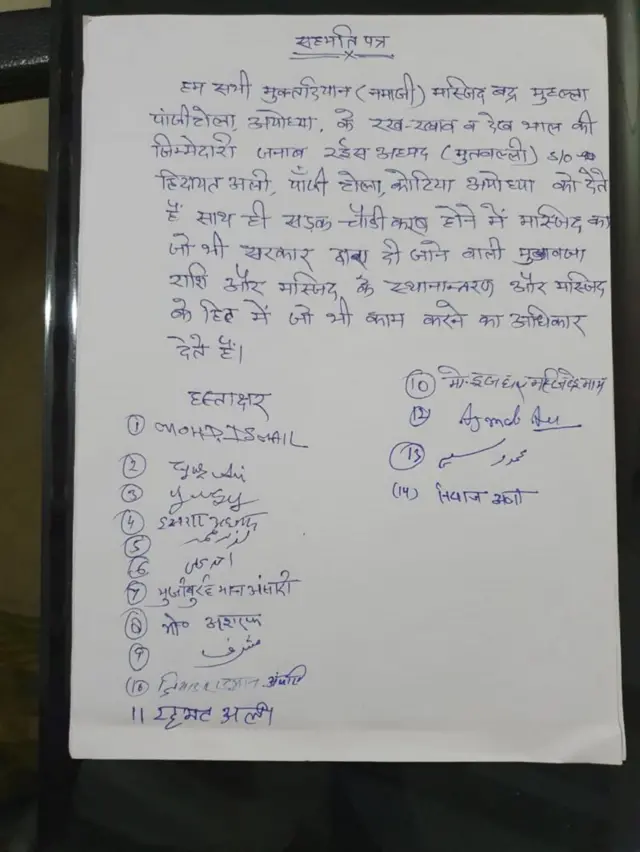 सहमति पत्र
हम सभी मुक्तदियान (नमाजी) मस्जिद बद्र मुहल्ला
पांजीटोला, अयोध्या, के रख-रखाव व देख भाल की
जिम्मेदारी जनाब रईस अहमद (मुतवल्ली) S/O
हिदायत अली, पाँजी टोला, कोटिया अयोध्या को देते
हैं साथ ही सड़क चौड़ीकरण होने में मस्जिद का
जो भी सरकार द्वारा दी जाने वाली मुआवजा
राशि और मस्जिद के स्थानान्तरण और मस्जिद
के हित में जो भी काम करने का अधिकार
देते हैं।
हस्ताक्षर
① MOHD ISMAIL
②
③
④
⑤
⑥
⑦ मुजीबुर्रहमान अंसारी
⑧ मो० अशरफ
⑨ مشرف
(10) अंसारी
11 रहमत अली
⑩ मो.
⑫ Ajmal Ali
⑬ محمد
(14) नियाज अली